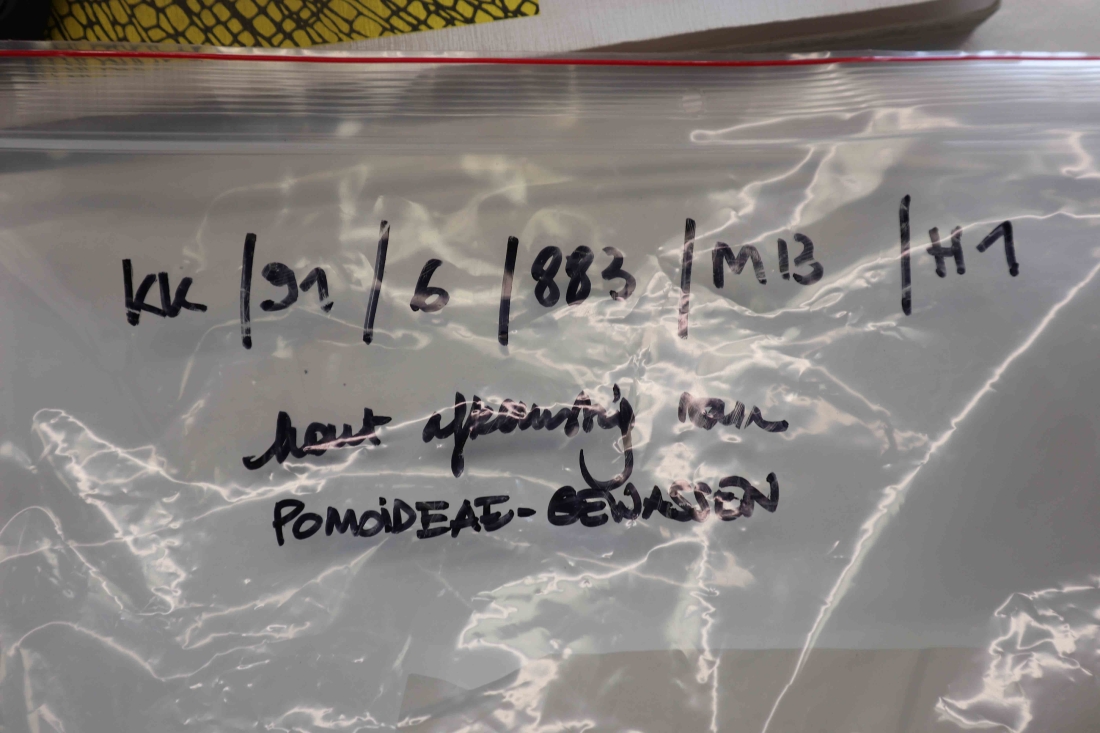 KK / 91 / 6 / 883 / M13 / H1
hout afkomstig van
POMOiDEAE-GEWASSEN